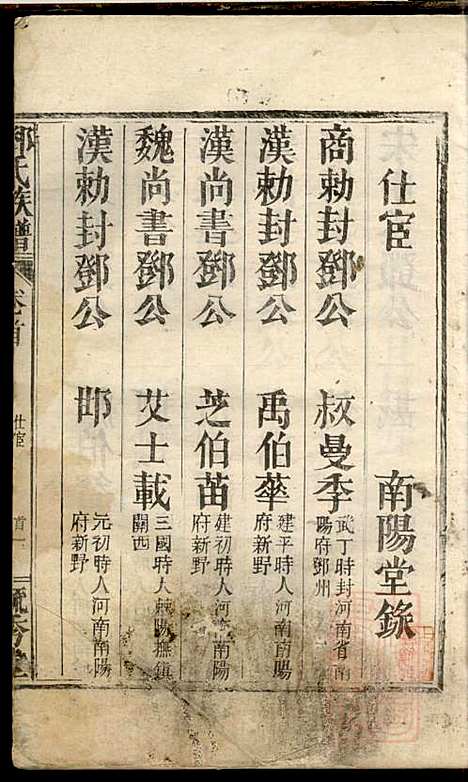 仕宦 南陽堂錄
商勅封鄧公 叔曼季 武丁時封河南省南陽府鄧州
漢勅封鄧公 禹伯華 建平時人河南南陽府新野
漢尚書鄧公 芝伯苗 建初時人河南南陽府新野
魏尚書鄧公 艾士載 三國時人棘陽撫鎮關西
漢勅封鄧公 邯 元初時人河南南陽府新野
鄧氏族譜 卷首 仕宦 首一